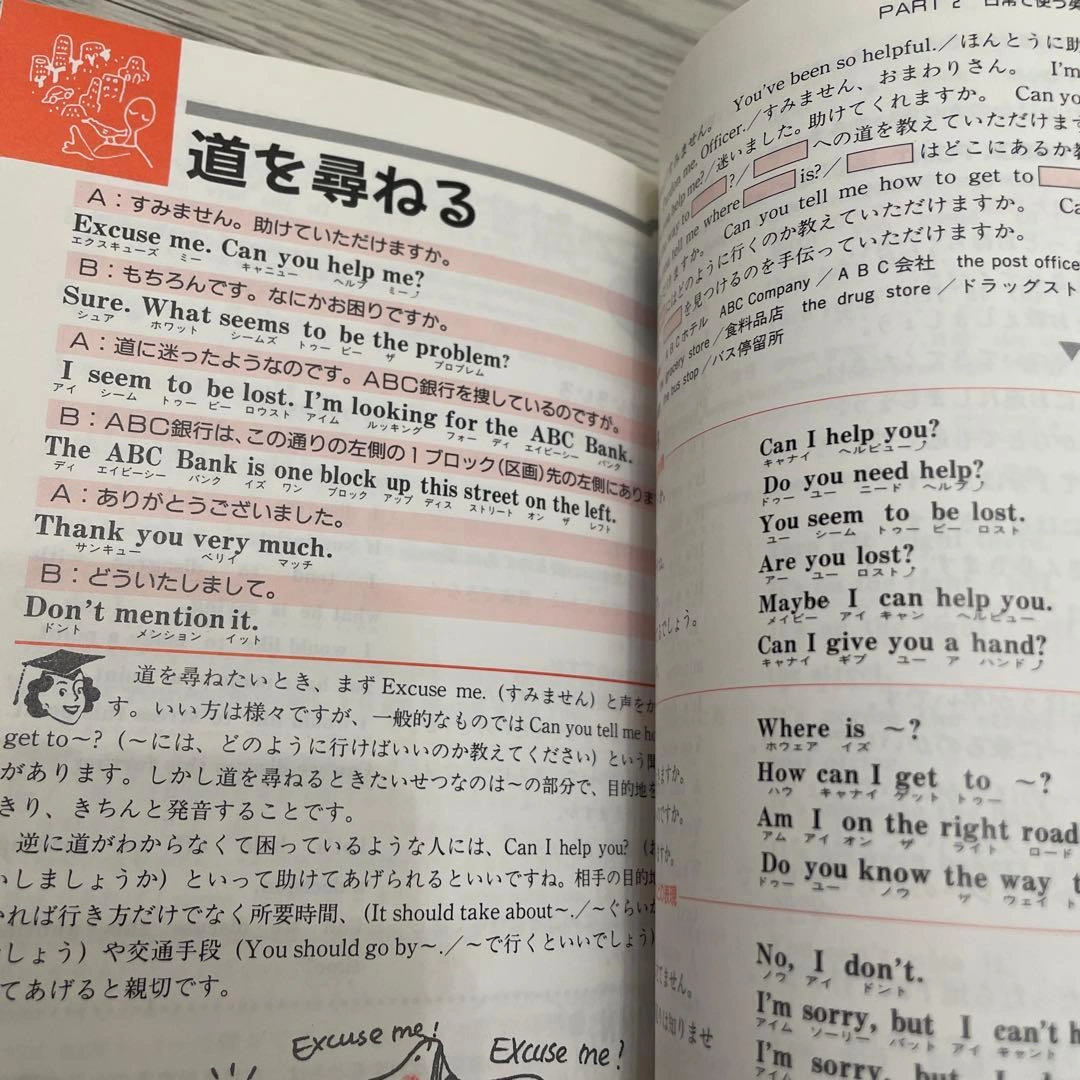 道を尋ねる
A：すみません。助けていただけますか。
Excuse me. Can you help me?
エクスキューズ ミー キャニュー ヘルプ ミーノ
B：もちろんです。なにかお困りですか。
Sure. What seems to be the problem?
シュア ホワット シームズ トゥー ビー ザ プロブレム
A：道に迷ったようなのです。ABC銀行を捜しているのですが。
I seem to be lost. I'm looking for the ABC Bank.
アイ シーム トゥー ビー ロウスト アイム ルッキング フォー ディ エイビーシー バンク
B：ABC銀行は、この通りの左側の1ブロック(区画)先の左側にありま
The ABC Bank is one block up this street on the left.
ディ エイビーシー バンク イズ ワン ブロック アップ ディス ストリート オン ザ レフト
A：ありがとうございました。
Thank you very much.
サンキュー ベリイ マッチ
B：どういたしまして。
Don't mention it.
ドント メンション イット
道を尋ねたいとき、まず Excuse me.（すみません）と声をか
す。いい方は様々ですが、一般的なものでは Can you tell me ho
get to～?（～には、どのように行けばいいのか教えてください）という聞
があります。しかし道を尋ねるときたいせつなのは～の部分で、目的地を
きり、きちんと発音することです。
逆に道がわからなくて困っているような人には、Can I help you?（お
いしましょうか）といって助けてあげられるといいですね。相手の目的地
かれば行き方だけでなく所要時間、(It should take about～./～ぐらいか
しょう）や交通手段（You should go by～./～で行くといいでしょう）
てあげると親切です。
Excuse me!
Excuse me?
PART 2 日常で使う英
You've been so helpful.／ほんとうに助
みません。
Officer.／すみません、おまわりさん。 I'm
help me?／迷いました。助けてくれますか。 Can yo
way to ?／ への道を教えていただけます
tell me where is?／ はどこにあるか教
きますか。 Can you tell me how to get to
にはどのように行くのか教えていただけますか。 Ca
を見つけるのを手伝っていただけますか。
ABCホテル ABC Company／ABC会社 the post office
grocery store／食料品店 the drug store／ドラッグスト
the bus stop／バス停留所
Can I help you?
キャナイ ヘルピューノ
Do you need help?
ドゥー ユー ニード ヘルプノ
You seem to be lost.
ユー シーム トゥー ビー ロスト
Are you lost?
アー ユー ロストノ
Maybe I can help you.
メイビー アイ キャン ヘルピュー
でしょう。
Can I give you a hand?
キャナイ ギブ ユー ア ハンドノ
Where is ～?
ホウェア イズ
きますか。
How can I get to ～?
ハウ キャナイ ゲット トゥー
のですか。
Am I on the right road
アム アイ オン ザ ライト ロード
ますか。
Do you know the way t
ドゥー ユー ノウ ザ ウェイ ト
の表現
No, I don't.
ノウ アイ ドント
てません。
I'm sorry, but I can't h
アイム ソーリー バット アイ キャント
は知りませ
I'm sorry, but I d
アイム